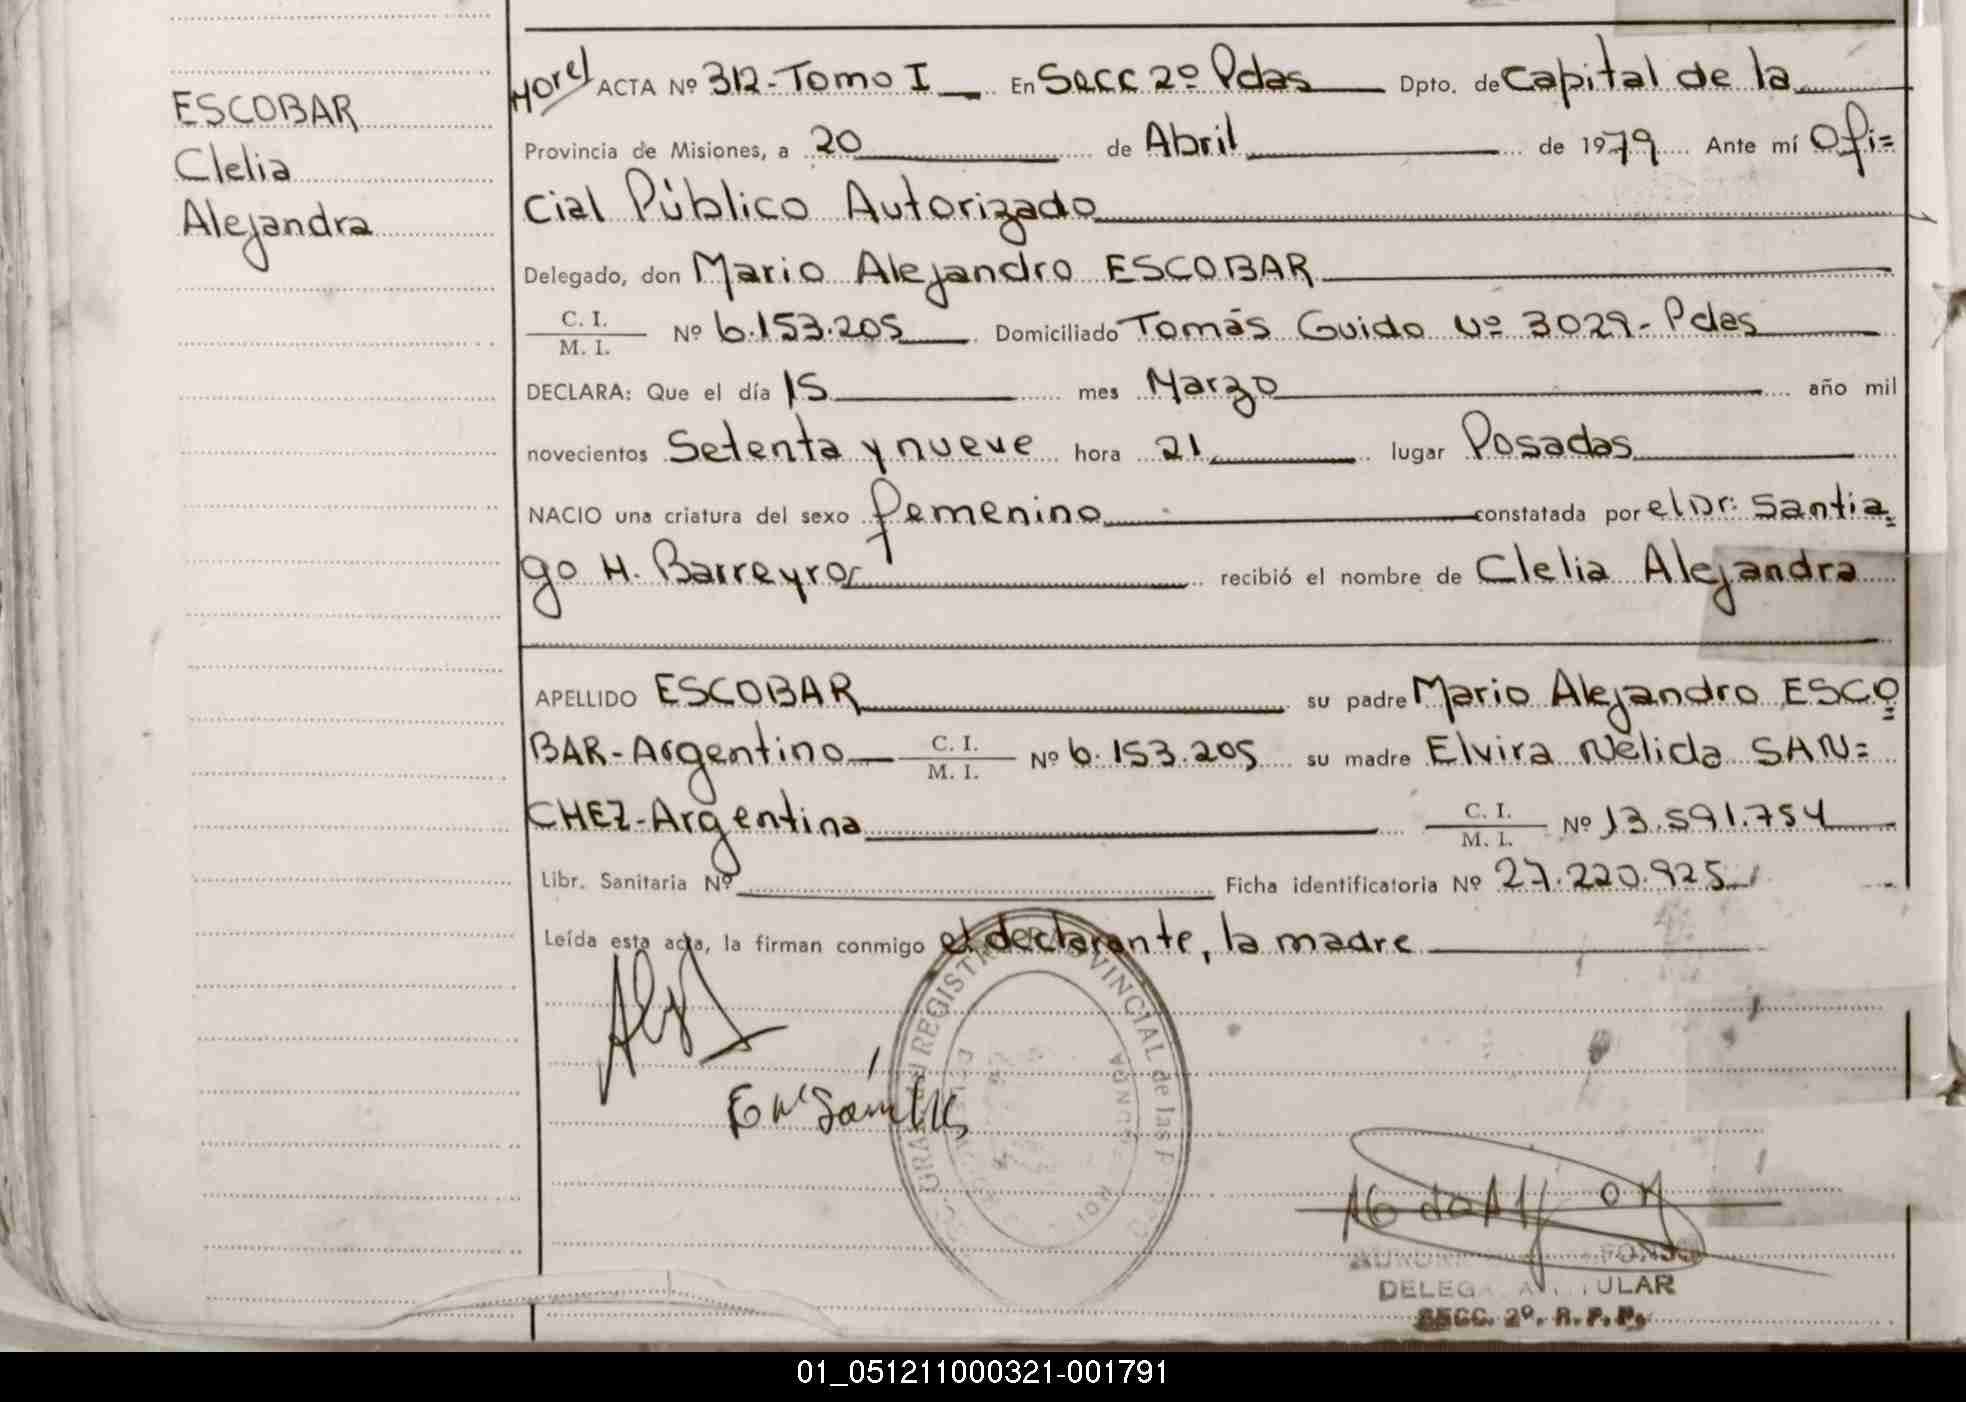 ESCOBAR
Clelia
Alejandra
ACTA Nº 312-Tomo I En Secc 2º Pdas Dpto. de Capital de la
Provincia de Misiones, a 20 de Abril de 1979 Ante mí Ofi=
cial Público Autorizado
Delegado, don Mario Alejandro ESCOBAR
C. I.
M. I. Nº 6.153.205 Domiciliado Tomás Guido Nº 3029-Pdas
DECLARA: Que el día 15 mes Marzo año mil
novecientos Setenta y nueve hora 21 lugar Posadas
NACIO una criatura del sexo femenino constatada por el Dr. Santia=
go H. Barreyro recibió el nombre de Clelia Alejandra
APELLIDO ESCOBAR su padre Mario Alejandro ESCO=
BAR-Argentino C. I. M. I. Nº 6.153.205 su madre Elvira Nélida SAN=
CHEZ-Argentina C. I. M. I. Nº 13.591.754
Libr. Sanitaria Nº Ficha identificatoria Nº 27.220.925
Leída esta acta, la firman conmigo el declarante, la madre
REGISTRO PROVINCIAL de las P
DELEG TITULAR
SECC. 2º. R.P.P.
01_051211000321-001791